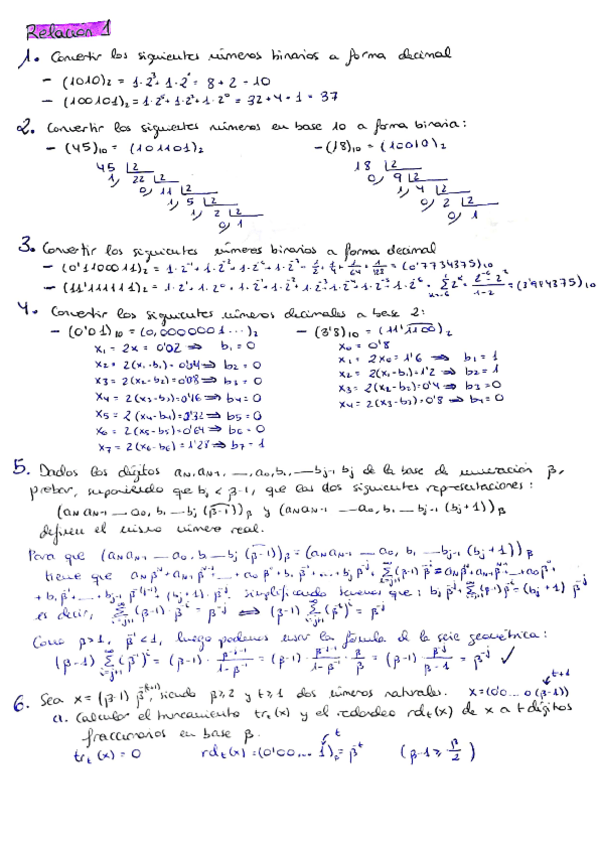 Relación 1
1. Convertir los siguientes números binarios a forma decimal
- (1010)₂ = 1·2³ + 1·2¹ = 8 + 2 = 10
- (100101)₂ = 1·2⁵ + 1·2² + 1·2⁰ = 32 + 4 + 1 = 37
2. Convertir los siguientes números en base 10 a forma binaria:
- (45)₁₀ = (101101)₂ - (18)₁₀ = (10010)₂
45 |2 18 |2
1, 22 |2 0, 9 |2
0, 11 |2 1, 4 |2
1, 5 |2 0, 2 |2
1, 2 |2 0, 1
0, 1
3. Convertir los siguientes números binarios a forma decimal
- (0'1100011)₂ = 1·2⁻¹ + 1·2⁻² + 1·2⁻⁶ + 1·2⁻⁷ = 1/2 + 1/4 + 1/64 + 1/128 = (0'7734375)₁₀
- (11'111111)₂ = = (3'984375)₁₀
4. Convertir los siguientes números decimales a base 2:
- (0'01)₁₀ = (0,0000001...)₂ - (3'8)₁₀ = (11'1100)₂
x₁ = 2x = 0'02 ⇒ b₁ = 0 x₀ = 0'8
x₂ = 2(x₁-b₁) = 0'04 ⇒ b₂ = 0 x₁ = 2x₀ = 1'6 ⇒ b₁ = 1
x₃ = 2(x₂-b₂) = 0'08 ⇒ b₃ = 0 x₂ = 2(x₁-b₁) = 1'2 ⇒ b₂ = 1
x₄ = 2(x₃-b₃) = 0'16 ⇒ b₄ = 0 x₃ = 2(x₂-b₂) = 0'4 ⇒ b₃ = 0
x₅ = 2(x₄-b₄) = 0'32 ⇒ b₅ = 0 x₄ = 2(x₃-b₃) = 0'8 ⇒ b₄ = 0
x₆ = 2(x₅-b₅) = 0'64 ⇒ b₆ = 0
x₇ = 2(x₆-b₆) = 1'28 ⇒ b₇ = 1
5. Dados los dígitos a_N, a_N-1, ..., a₀, b₁, ... b_j-1, b_j de la base de numeración β,
probar, suponiendo que b_j < β-1, que las dos siguientes representaciones:
(a_N a_N-1 ... a₀, b₁ ... b_j (β-1))_β y (a_N a_N-1 ... a₀, b₁ ... b_j-1 (b_j+1))_β
definen el mismo número real.
Para que (a_N a_N-1 ... a₀, b₁ ... b_j (β-1))_β = (a_N a_N-1 ... a₀, b₁ ... b_j-1 (b_j+1))_β
tiene que
simplificando tenemos que:
es decir, Σ (β-1)·β⁻ⁱ = β⁻ʲ ⟺ (β-1) Σ (β⁻ⁱ) = β⁻ʲ
Como β>1, β⁻¹<1, luego podemos usar la fórmula de la serie geométrica:
(β-1) Σ (β⁻¹)ⁱ = (β-1) · β⁻ʲ⁻¹/(1-β⁻¹) = (β-1) · β⁻ʲ⁻¹/(1-β⁻¹) · β/β = (β-1) · β⁻ʲ/(β-1) = β⁻ʲ ✓
6. Sea x = (β-1) β^-(t+1), siendo β≥2 y t≥1 dos números naturales. x = (0'0...0(β-1)) t+1
a. Calcular el truncamiento tr_t(x) y el redondeo rd_t(x) de x a t dígitos
fraccionarios en base β.
tr_t(x) = 0 rd_t(x) = (0'00...1)_β = β⁻ᵗ (β-1 ≥ β/2)